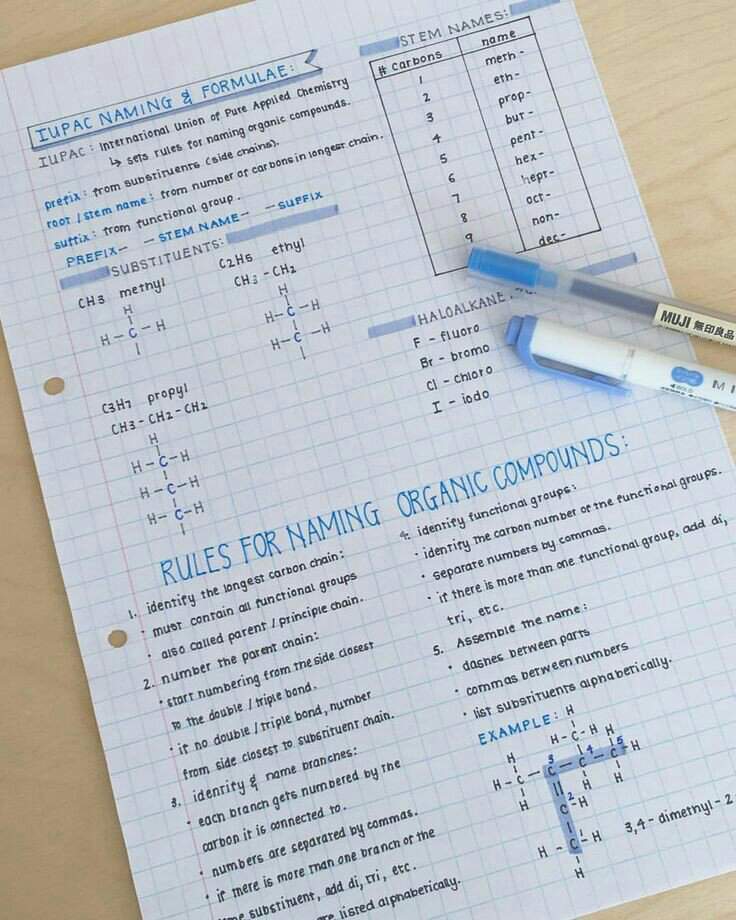 IUPAC NAMING & FORMULAE:
IUPAC: International Union of Pure Applied Chemistry
↳ sets rules for naming organic compounds.
prefix: from substituents (side chains).
root / stem name: from number of carbons in longest chain.
suffix: from functional group.
PREFIX— —STEM NAME— —SUFFIX
STEM NAMES:
# carbons name
1 meth-
2 eth-
3 prop-
4 but-
5 pent-
6 hex-
7 hept-
8 oct-
9 non-
dec-
SUBSTITUENTS:
CH3 methyl
H
H-C-H
C2H5 ethyl
CH3-CH2
H
H-C-H
H-C-H
C3H7 propyl
CH3-CH2-CH2
H
H-C-H
H-C-H
H-C-H
HALOALKANE
F - fluoro
Br - bromo
Cl - chloro
I - iodo
MUJI 無印良品
BOLD MI
RULES FOR NAMING ORGANIC COMPOUNDS:
1. identify the longest carbon chain:
· must contain all functional groups
· also called parent / principle chain.
2. number the parent chain:
· start numbering from the side closest
to the double / triple bond.
· if no double / triple bond, number
from side closest to substituent chain.
3. identify & name branches:
· each branch gets numbered by the
carbon it is connected to.
· numbers are separated by commas.
· if there is more than one branch of the
substituent, add di, tri, etc.
listed alphabetically.
4. identify functional groups:
· identify the carbon number of the functional groups.
· separate numbers by commas.
· if there is more than one functional group, add di,
tri, etc.
5. Assemble the name:
· dashes between parts
· commas between numbers
· list substituents alphabetically.
EXAMPLE:
H
H-C-H H
H 3 4 5
H-C-C-C-C-H
H H H
2
C-H
H-C-H
H
3,4-dimethyl-2